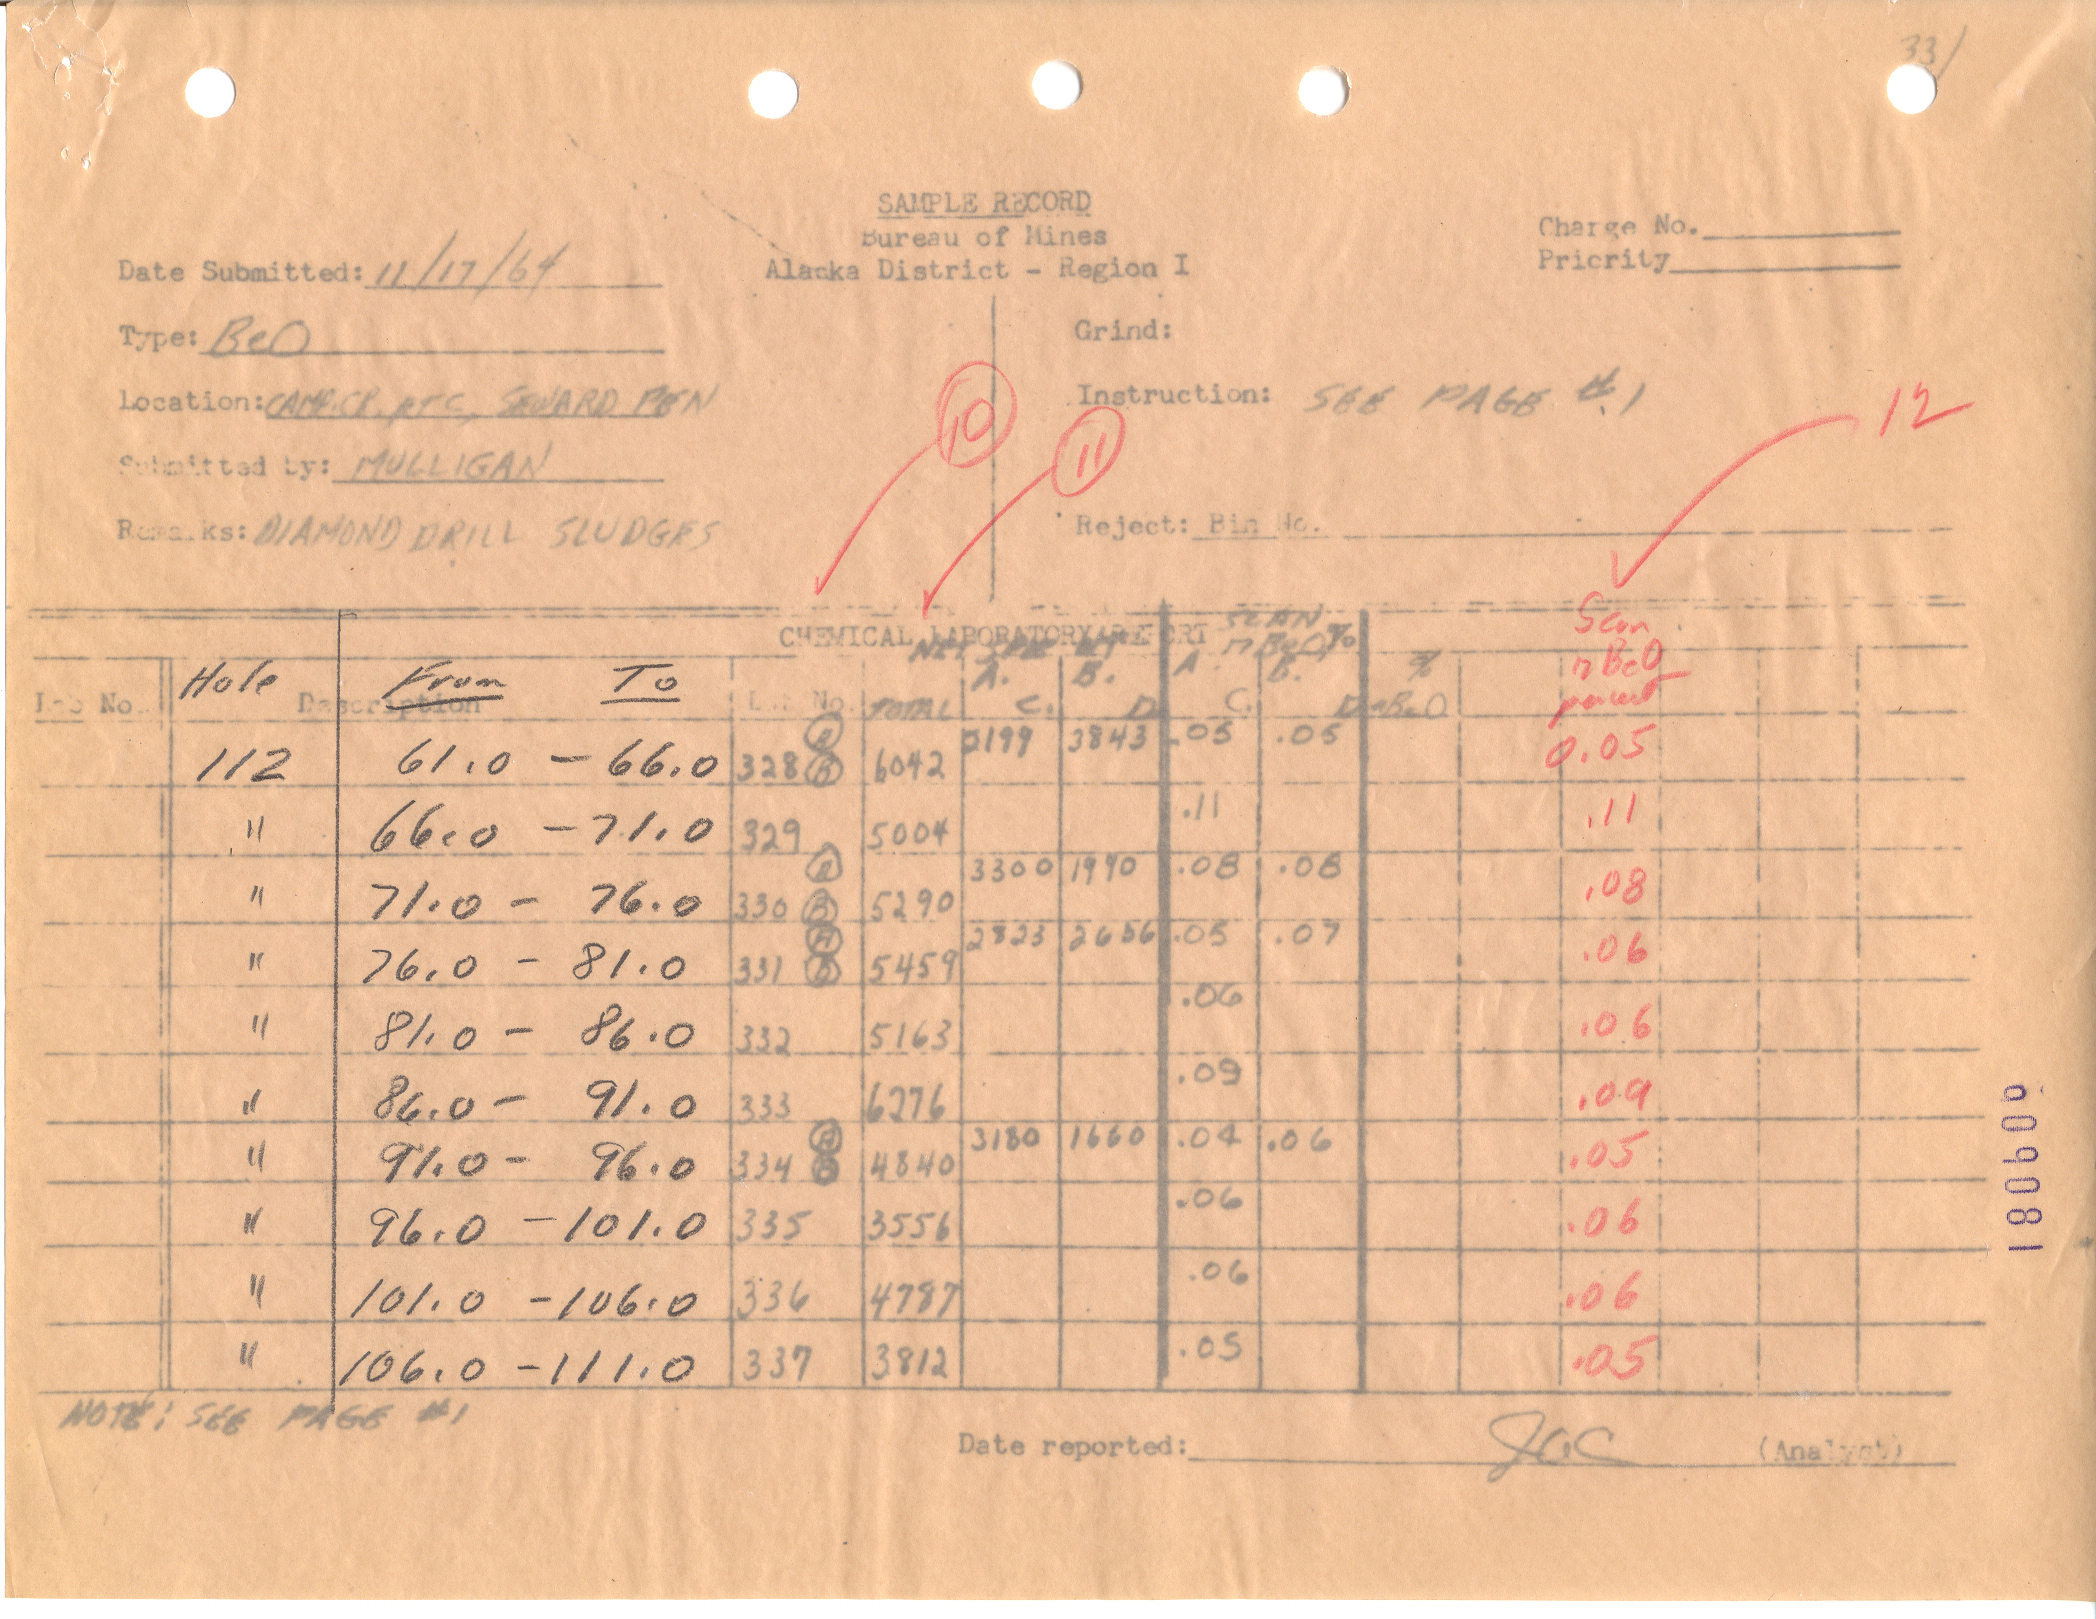 33/
SAMPLE RECORD
Bureau of Mines
Alaska District - Region I
Charge No.
Priority
Date Submitted: 11/17/64
Type: BeO
Location: CAMP.CR, ETC, SEWARD PEN
Submitted by: MULLIGAN
Remarks: DIAMOND DRILL SLUDGES
Grind:
Instruction: SEE PAGE #1
Reject: Bin No.
10
11
12
CHEMICAL LABORATORY REPORT
NET SPLE WT
SCAN
n BeO %
Scan
n BeO
percent
Lab No. Hole Description From To Lab No. TOTAL A. B. C. D. A. B. C. D % nBeO
112 61.0 - 66.0 328 A B 6042 2199 3843 .05 .05 0.05
" 66.0 - 71.0 329 5004 .11 .11
" 71.0 - 76.0 330 A B 5290 3300 1990 .08 .08 .08
" 76.0 - 81.0 331 A B 5459 2823 2636 .05 .07 .06
" 81.0 - 86.0 332 5163 .06 .06
" 86.0 - 91.0 333 6276 .09 .09
" 91.0 - 96.0 334 A B 4840 3180 1660 .04 .06 .05
" 96.0 - 101.0 335 3556 .06 .06
" 101.0 - 106.0 336 4787 .06 .06
" 106.0 - 111.0 337 3812 .05 .05
NOTE: SEE PAGE #1
Date reported: (Analyst)